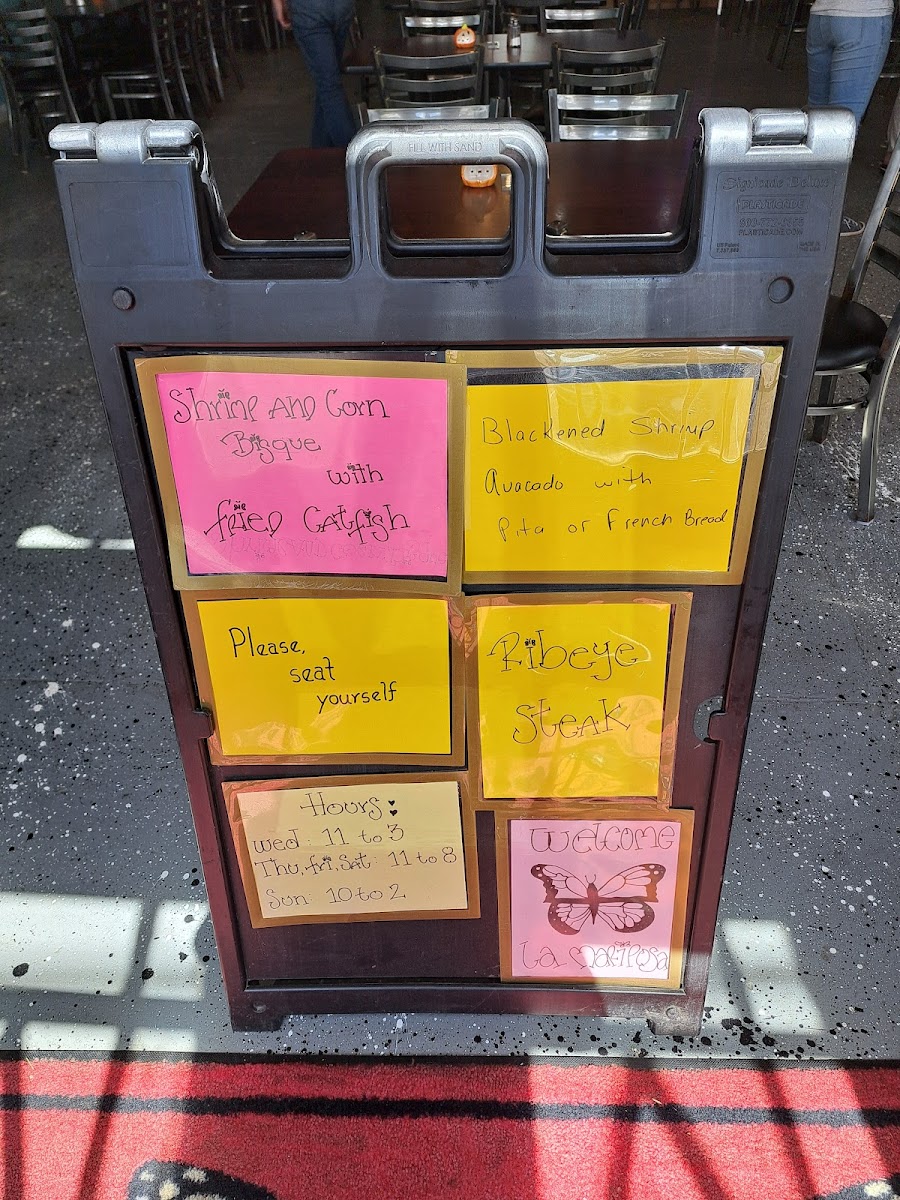 FILL WITH SAND
Signicade Deluxe
PLASTICADE
PLASTICADE.COM
Shrimp And Corn
Bisque
with
fried Catfish
Blackened Shrimp
Avacado with
Pita or French Bread
Please,
seat
yourself
Ribeye
Steak
Hours:
Wed: 11 to 3
Thu, fri, Sat: 11 to 8
Sun: 10 to 2
Welcome
La Mariposa